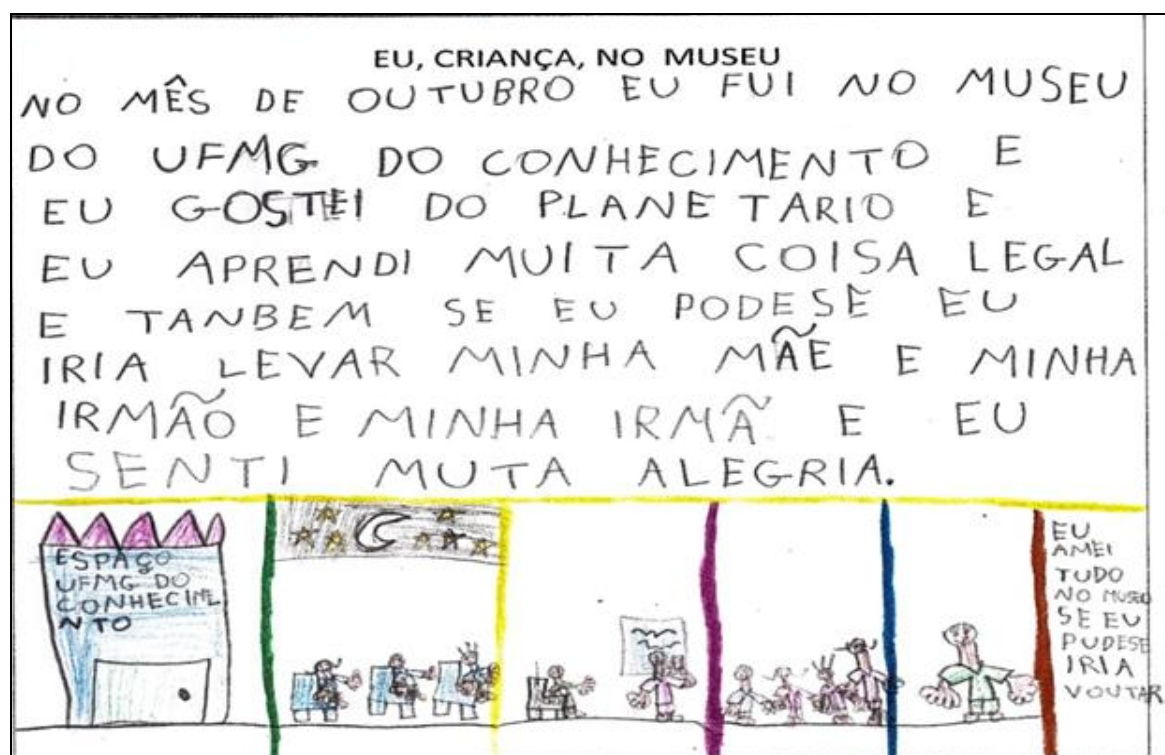 EU, CRIANÇA, NO MUSEU
NO MÊS DE OUTUBRO EU FUI NO MUSEU
DO UFMG DO CONHECIMENTO E
EU GOSTEI DO PLANETARIO E
EU APRENDI MUITA COISA LEGAL
E TANBEM SE EU PODESE EU
IRIA LEVAR MINHA MÃE E MINHA
IRMÃO E MINHA IRMÃ E EU
SENTI MUTA ALEGRIA.
ESPAÇO
UFMG DO
CONHECIME
NTO
EU
AMEI
TUDO
NO MUSEU
SE EU
PUDESE
IRIA
VOUTAR